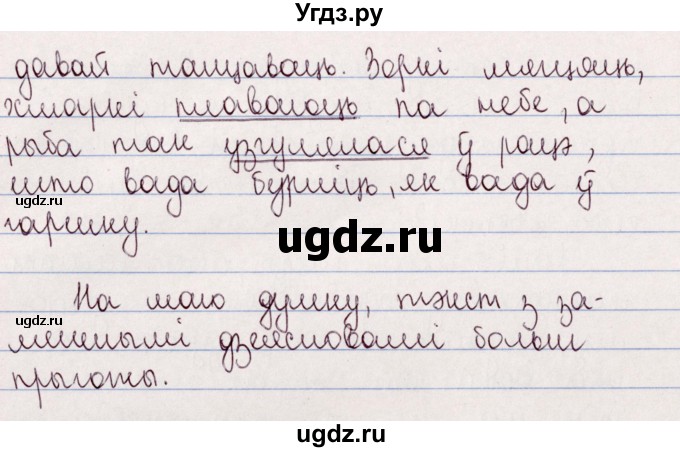 Угдз.ру
давай танцаваць. Зоркі мігцяць,
хмаркі плаваюць па небе, а
рыба так узгулялася ў рацэ,
што вада бурліць, як вада ў
гаршку.
ugdz.ru
ugdz.ru
На маю думку, тэкст з за-
ugdz.ru
мененымі дзеясловамі больш
прыгожы.
ugdz.ru